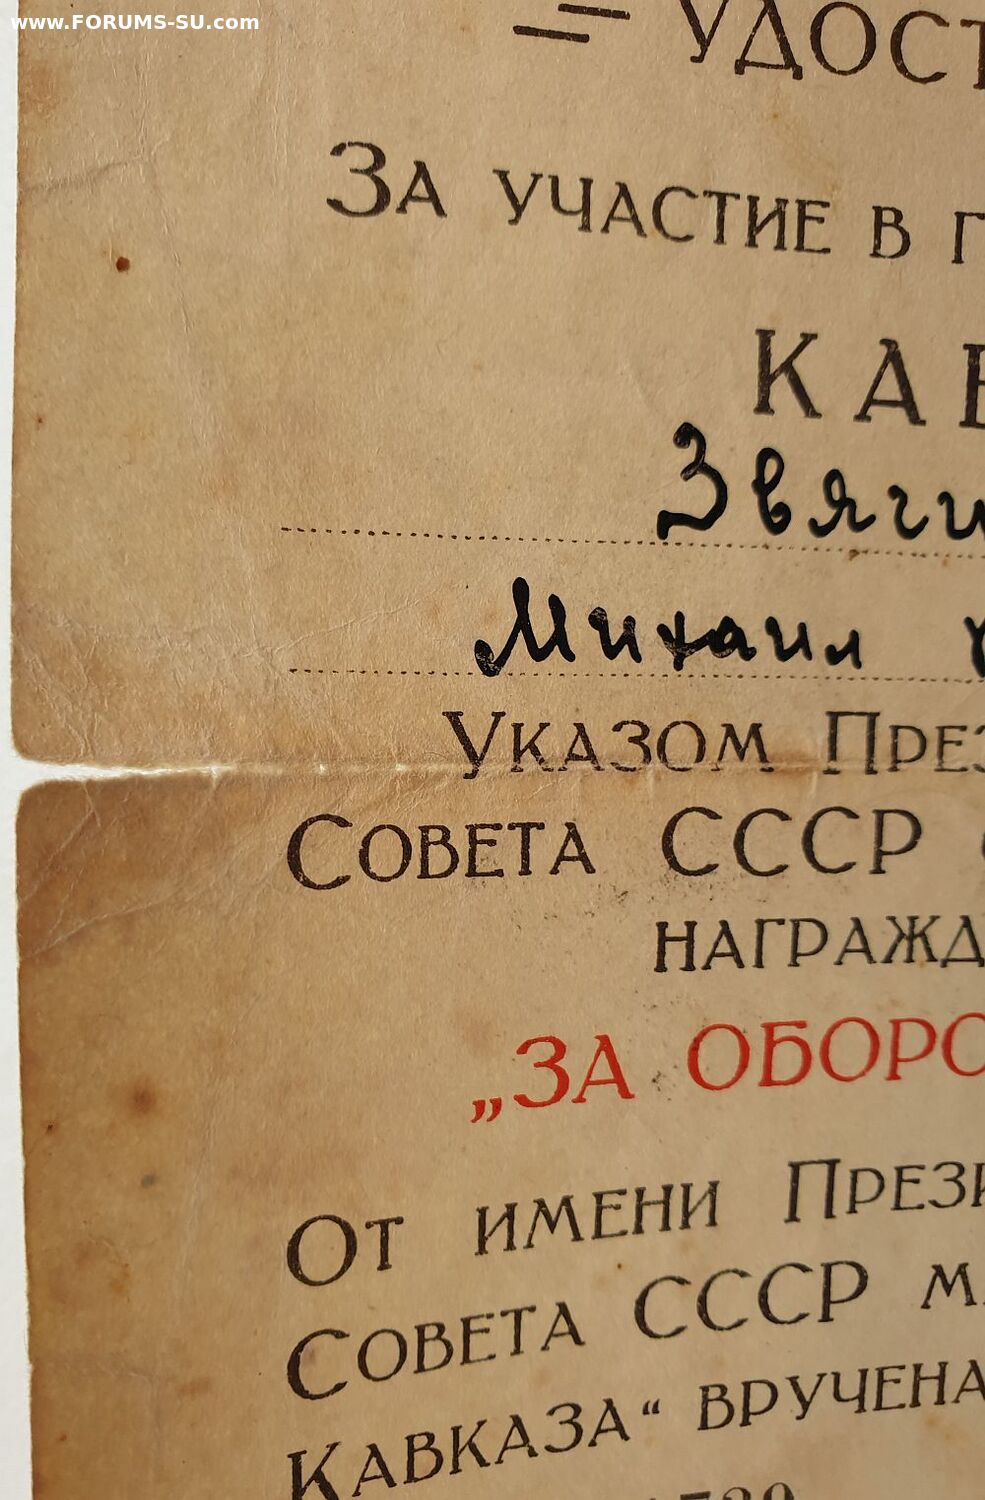 www.FORUMS-SU.com
= УДОСТ
ЗА УЧАСТИЕ В Г
КАВ
Звяги
Михаил
УКАЗОМ ПРЕЗ
СОВЕТА СССР
НАГРАЖД
„ЗА ОБОРО
ОТ ИМЕНИ ПРЕЗИ
СОВЕТА СССР М
КАВКАЗА“ ВРУЧЕНА